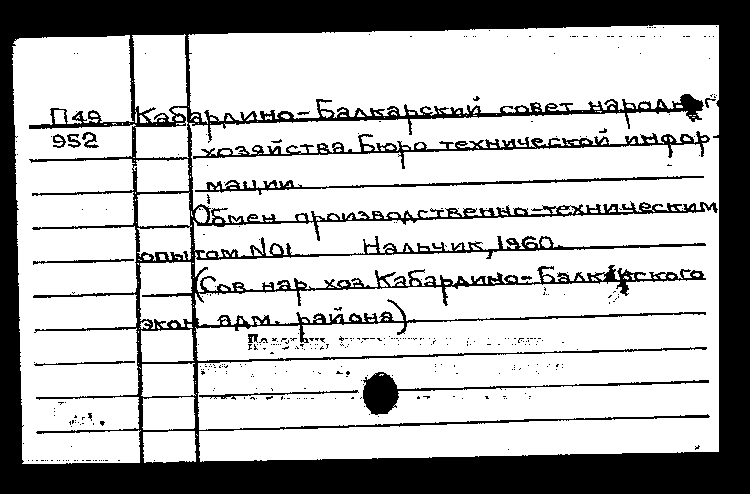 П49 Кабардино-Балкарский совет народного
952 хозяйства. Бюро технической инфор-
мации.
Обмен производственно-техническим
опытом. №1. Нальчик, 1960.
(Сов. нар. хоз. Кабардино-Балкарского
экон. адм. района)